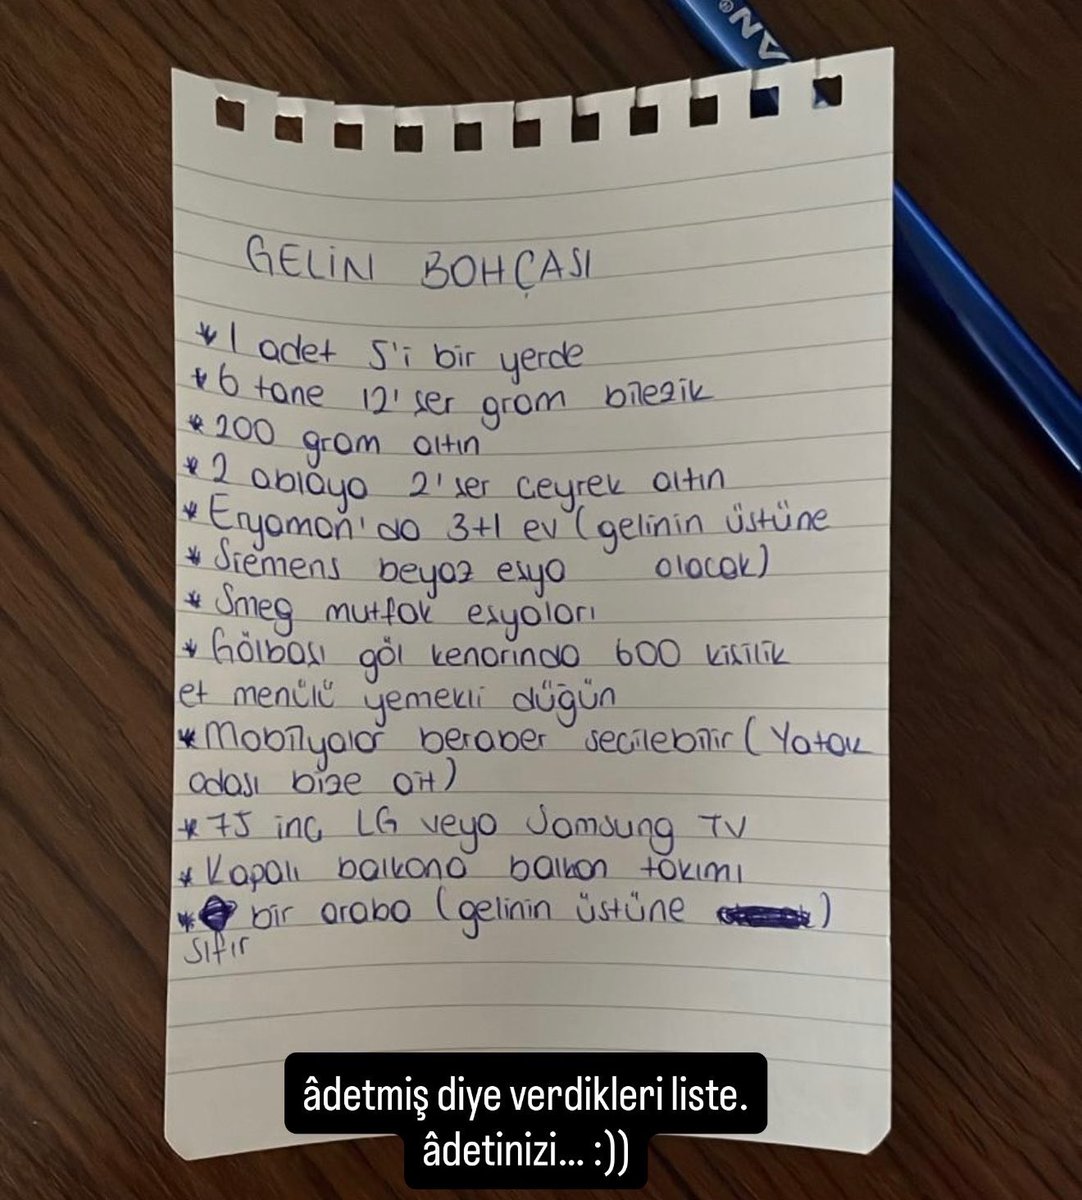 AN®
GELİN BOHÇASI
* 1 adet 5'i bir yerde
* 6 tane 12'şer gram bilezik
* 200 gram altın
* 2 ablaya 2'şer çeyrek altın
* Eryaman'da 3+1 ev (gelinin üstüne
* Siemens beyaz eşya olacak)
* Smeg mutfak eşyaları
* Gölbaşı göl kenarında 600 kişilik
et menülü yemekli düğün
* Mobilyalar beraber seçilebilir (Yatak
odası bize ait)
* 75 inç LG veya Samsung TV
* Kapalı balkona balkon takımı
* bir araba (gelinin üstüne )
sıfır
âdetmiş diye verdikleri liste.
âdetinizi... :))